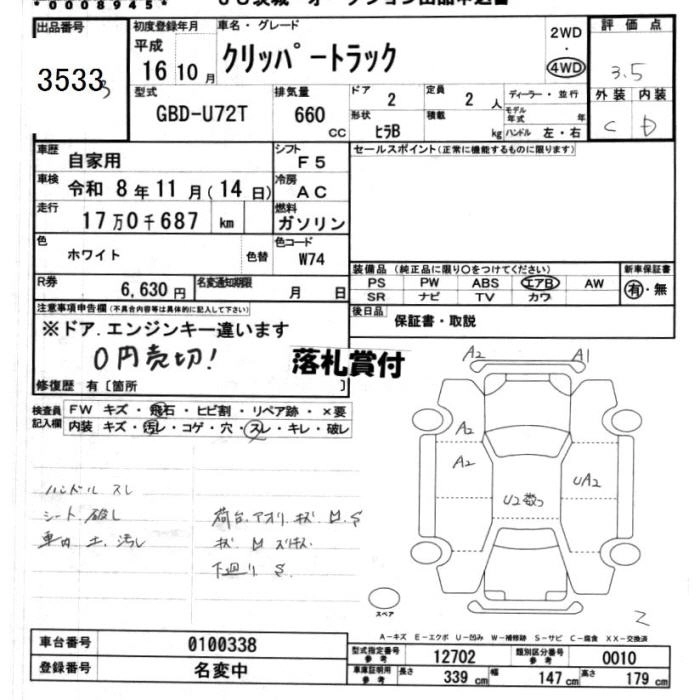 *0008945*
出品番号
35333
初度登録年月
平成
16 10 月
車名・グレード
クリッパートラック
2WD
・
4WD
評価点
3.5
外装 内装
C D
型式
GBD-U72T
排気量
660
CC
ドア
2
形状
ヒラB
定員
2 人
積載
kg
ディーラー・並行
モデル年式 年
ハンドル 左・右
車歴
自家用
シフト
F5
セールスポイント(正常に機能するものに限ります)
車検
令和 8 年 11 月( 14 日)
冷房
AC
走行
17 万 0 千 687 km
燃料
ガソリン
色
ホワイト
色替
色コード
W74
R券
6,630 円
名変通知期限
月 日
装備品 (純正品に限り○をつけてください)
PS PW ABS エアB AW
SR ナビ TV カワ
新車保証書
有・無
後日品
保証書・取説
注意事項申告欄(不具合内容等は具体的に記入して下さい)
※ドア.エンジンキー違います
0円売切!
落札賞付
修復歴 有〔箇所 〕
検査員記入欄
FW キズ・飛石・ヒビ割・リペア跡・×要
内装 キズ・汚レ・コゲ・穴・スレ・キレ・破レ
ハンドル スレ
シート 破レ
車内 土 汚レ
荷台 アオリ キズ
下廻り S
A2
A1
A2
A2
UA2
U2数つ
スペア
2
A-キズ E-エクボ U-凹み W-補修跡 S-サビ C-腐食 XX-交換済
車台番号
0100338
登録番号
名変中
型式指定番号 参考
12702
類別区分番号 参考
0010
車庫証明用 参考
長さ 339 cm
幅 147 cm
高さ 179 cm